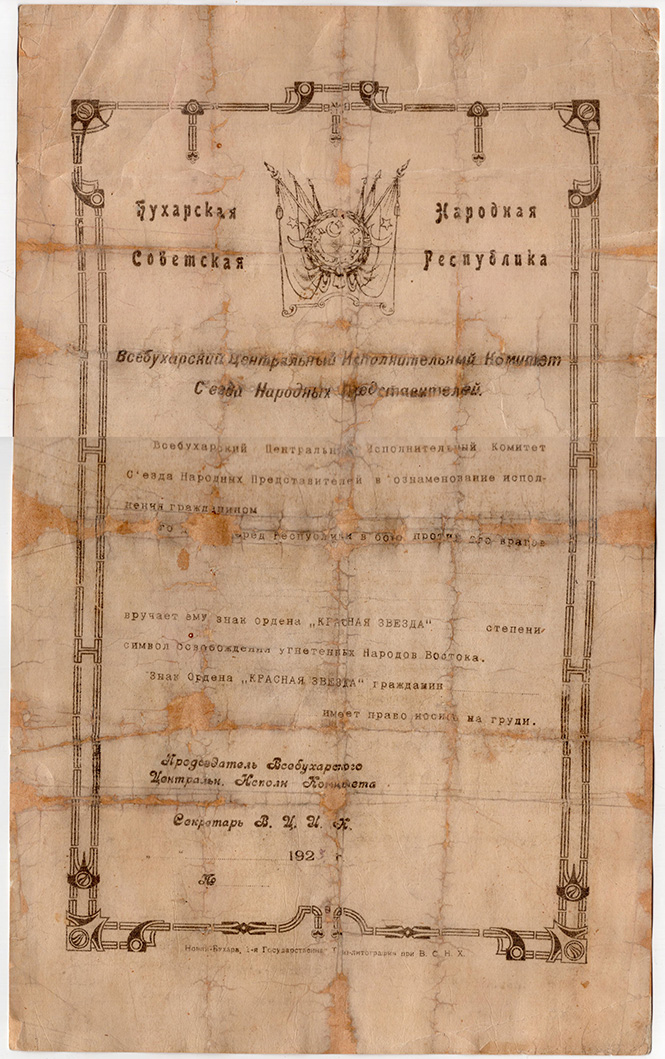 Бухарская Народная
Советская Республика
Всебухарский Центральный Исполнительный Комитет
С'езда Народных Представителей.
Всебухарский Центральный Исполнительный Комитет
С'езда Народных Представителей в ознаменование испол-
нения гражданином
го перед республикой в бою против его врагов
вручает ему знак ордена „КРАСНАЯ ЗВЕЗДА" степени
символ освобождения угнетенных Народов Востока.
Знак Ордена „КРАСНАЯ ЗВЕЗДА" гражданин
имеет право носить на груди.
Председатель Всебухарского
Центральн. Исполн Комитета
Секретарь В. Ц. И. К.
192 г
№
Новая-Бухара, 1-я Государственная Типо-литография при В. С. Н. Х.